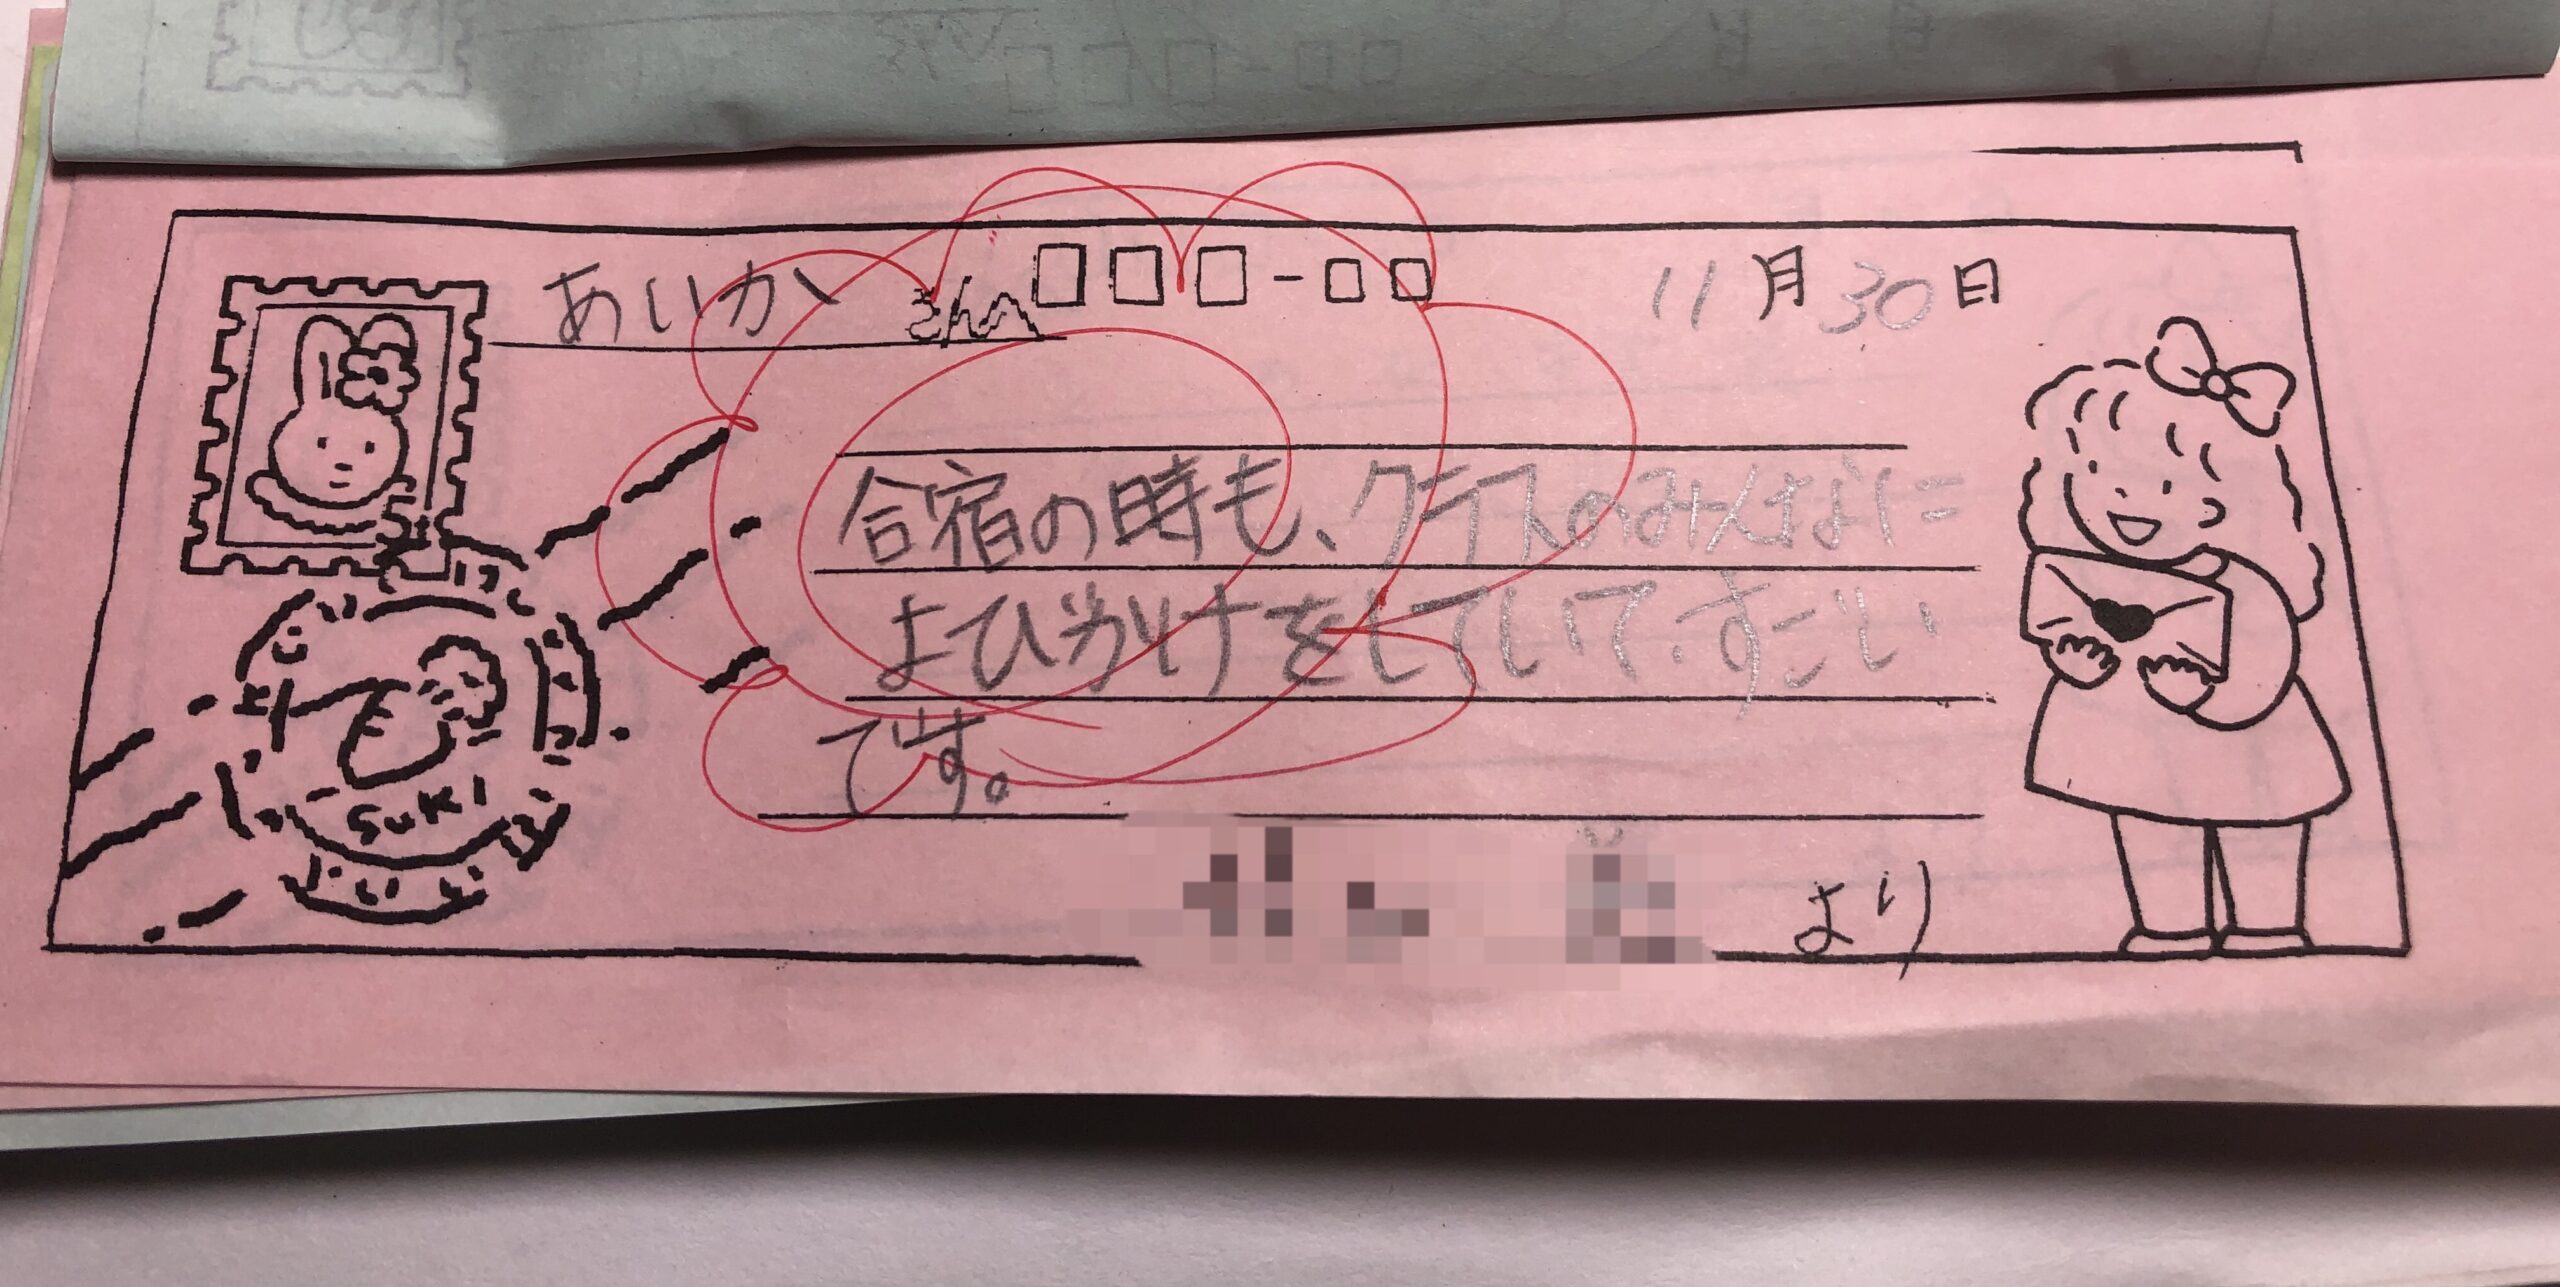 あいか さんへ
11月30日
合宿の時も、クラスのみんなに
よびかけをしていて、すごい
です。
より
SUKI